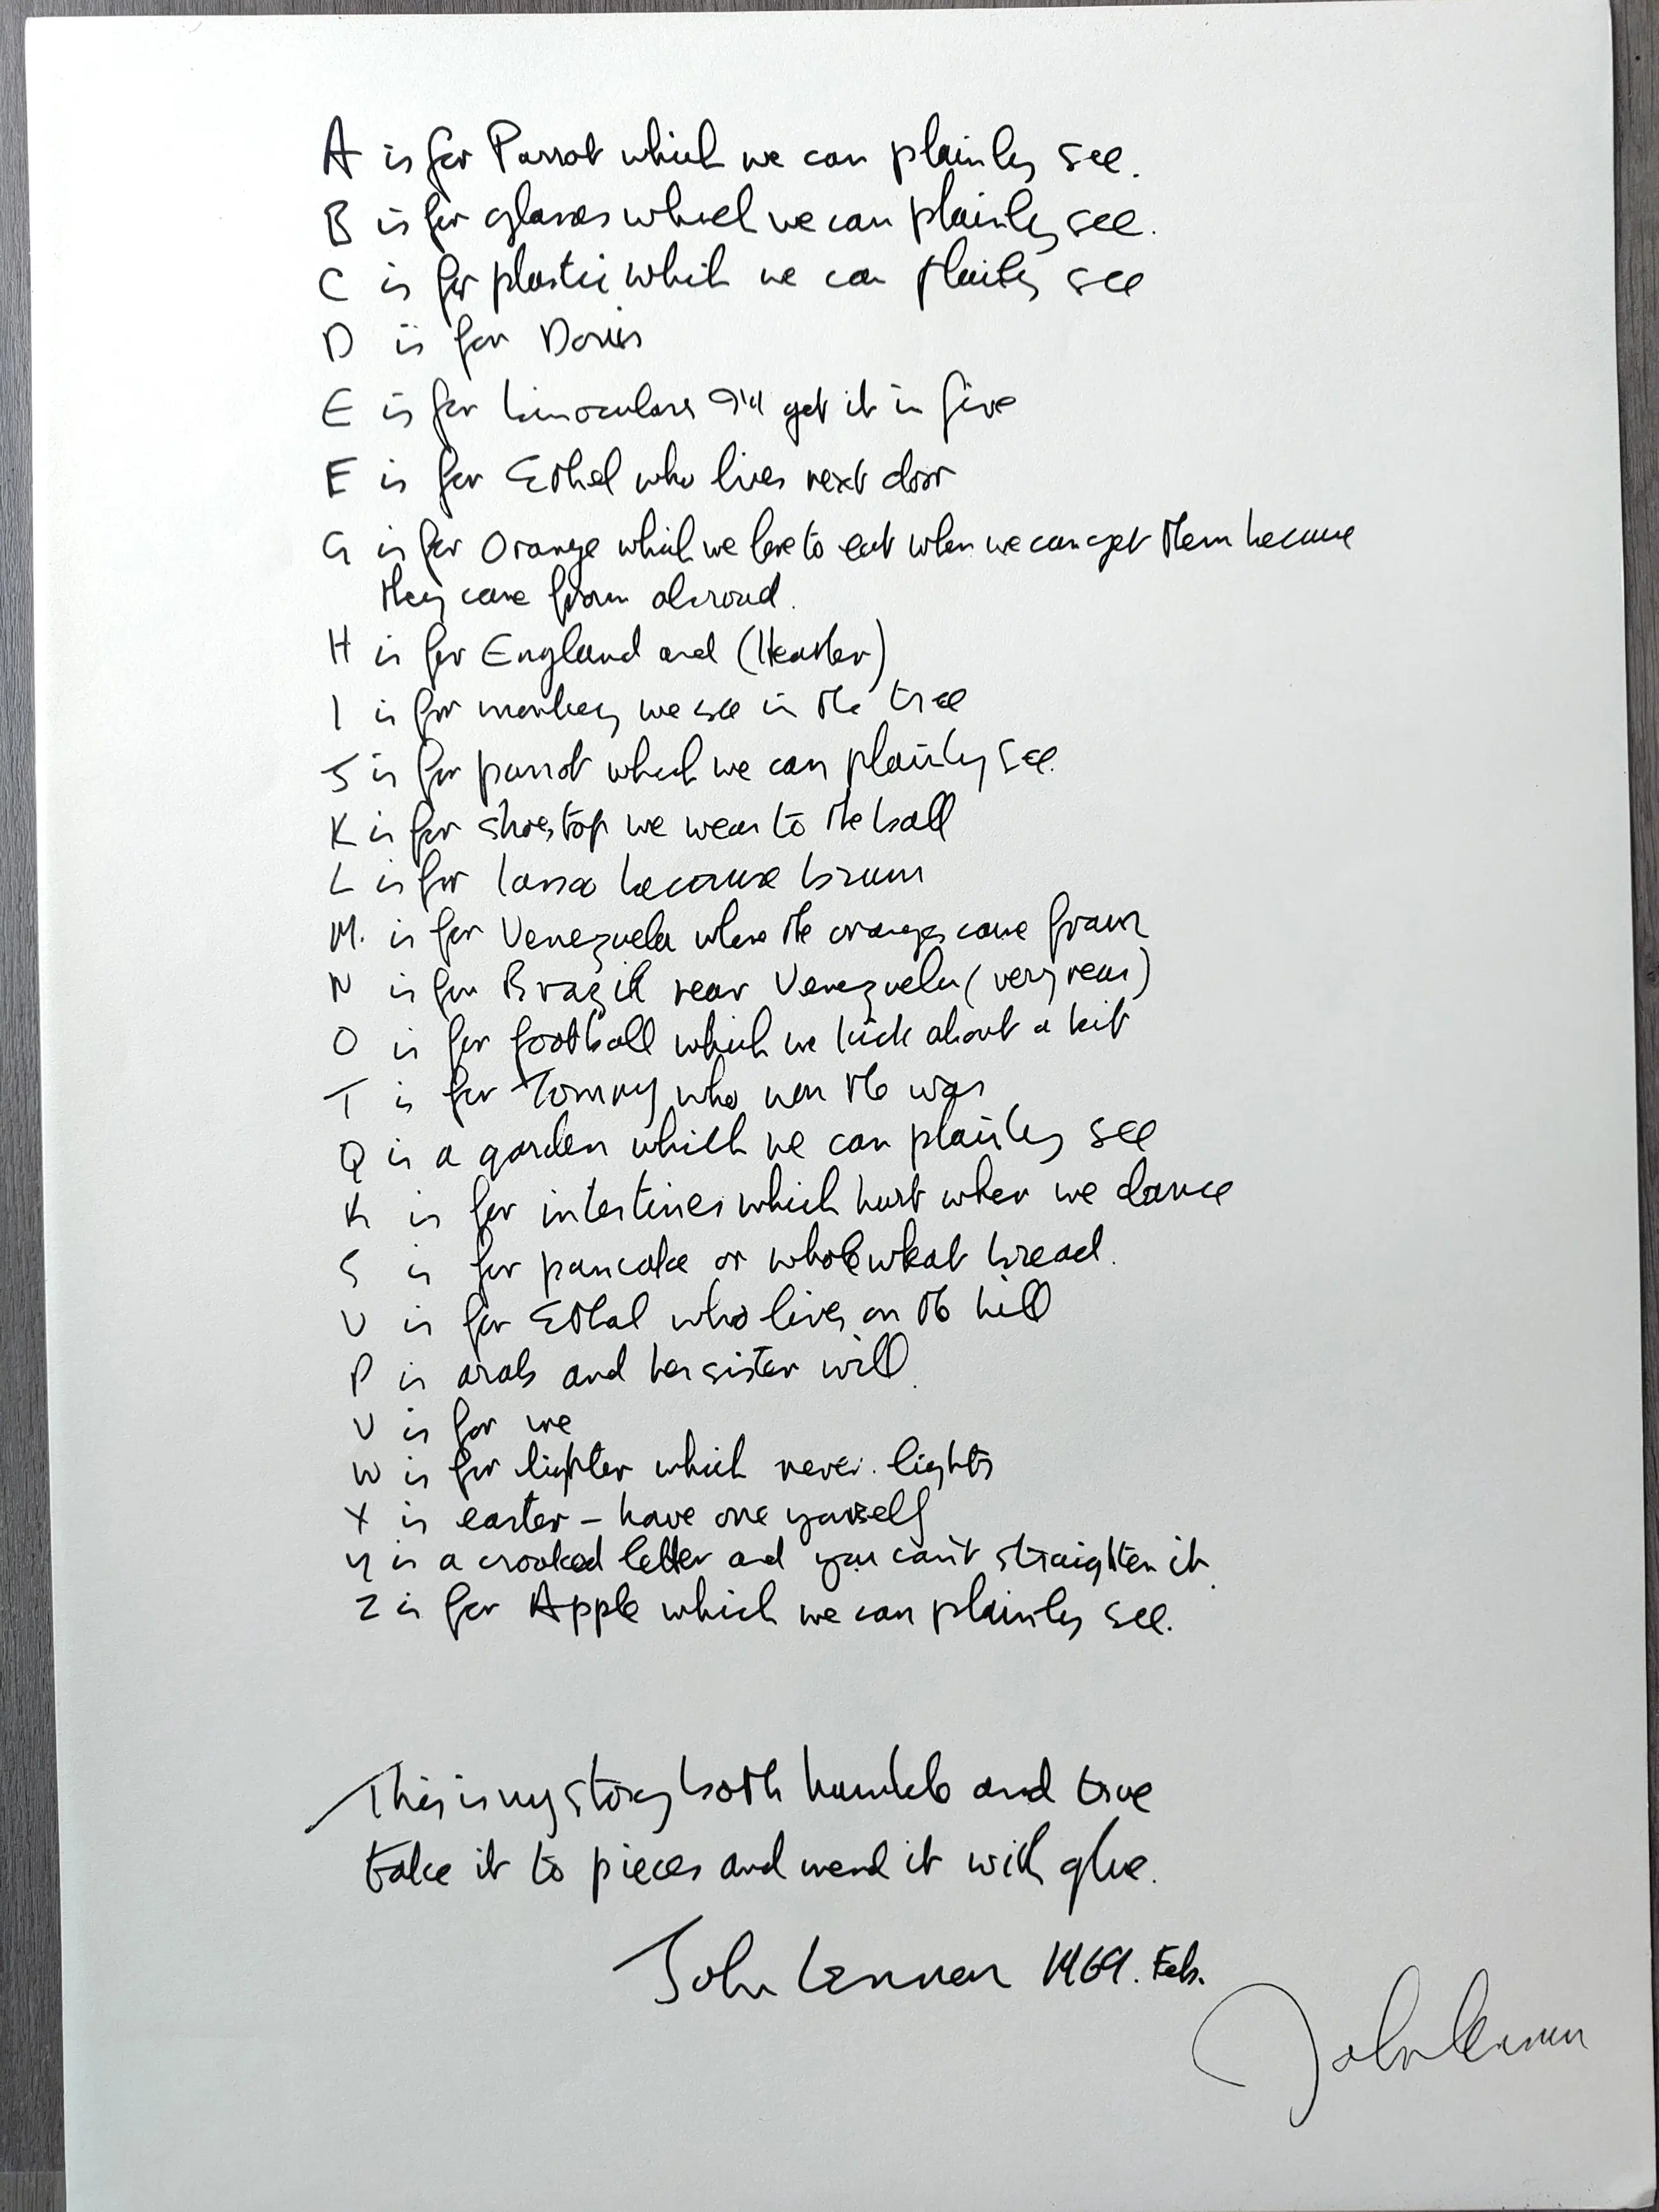 A is for Parrot which we can plainly see.
B is for glasses which we can plainly see.
C is for plastic which we can plainly see
D is for Doris
E is for binoculars I'll get it in five
E is for Ethel who lives next door
G is for Orange which we love to eat when we can get them because
they come from abroad.
H is for England and (Heather)
I is for monkey we see in the tree
J is for parrot which we can plainly see.
K is for shoestop we wear to the ball
L is for because brown
M. is for Venezuela where the oranges come from
N is for Brazil near Venezuela (very near)
O is for football which we kick about a bit
T is for Tommy who won the war
Q is a garden which we can plainly see
R is for intestines which hurt when we dance
S is for pancake or whole wheat bread.
U is for Ethel who lives on the hill
P is arab and her sister will.
U is for me
W is for lighter which never lights
X is easter - have one yourself
Y is a crooked letter and you can't straighten it.
Z is for Apple which we can plainly see.
This is my story both humble and true
take it to pieces and mend it with glue.
John Lennon 1969. Feb.
John Lennon